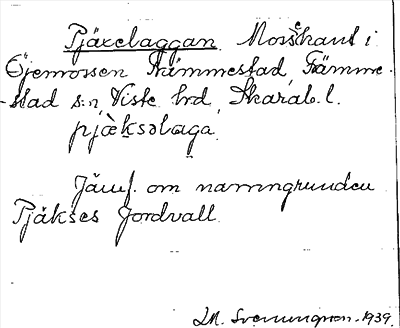 Pjäxelaggan Mosskant i
Öjemossen, Främmestad, Främme-
stad s:n, Viste hrd, Skarab. l.
pjæ̀ksəlaga
Jämf. om namngrunden
Pjäkses Jordvall
1939.